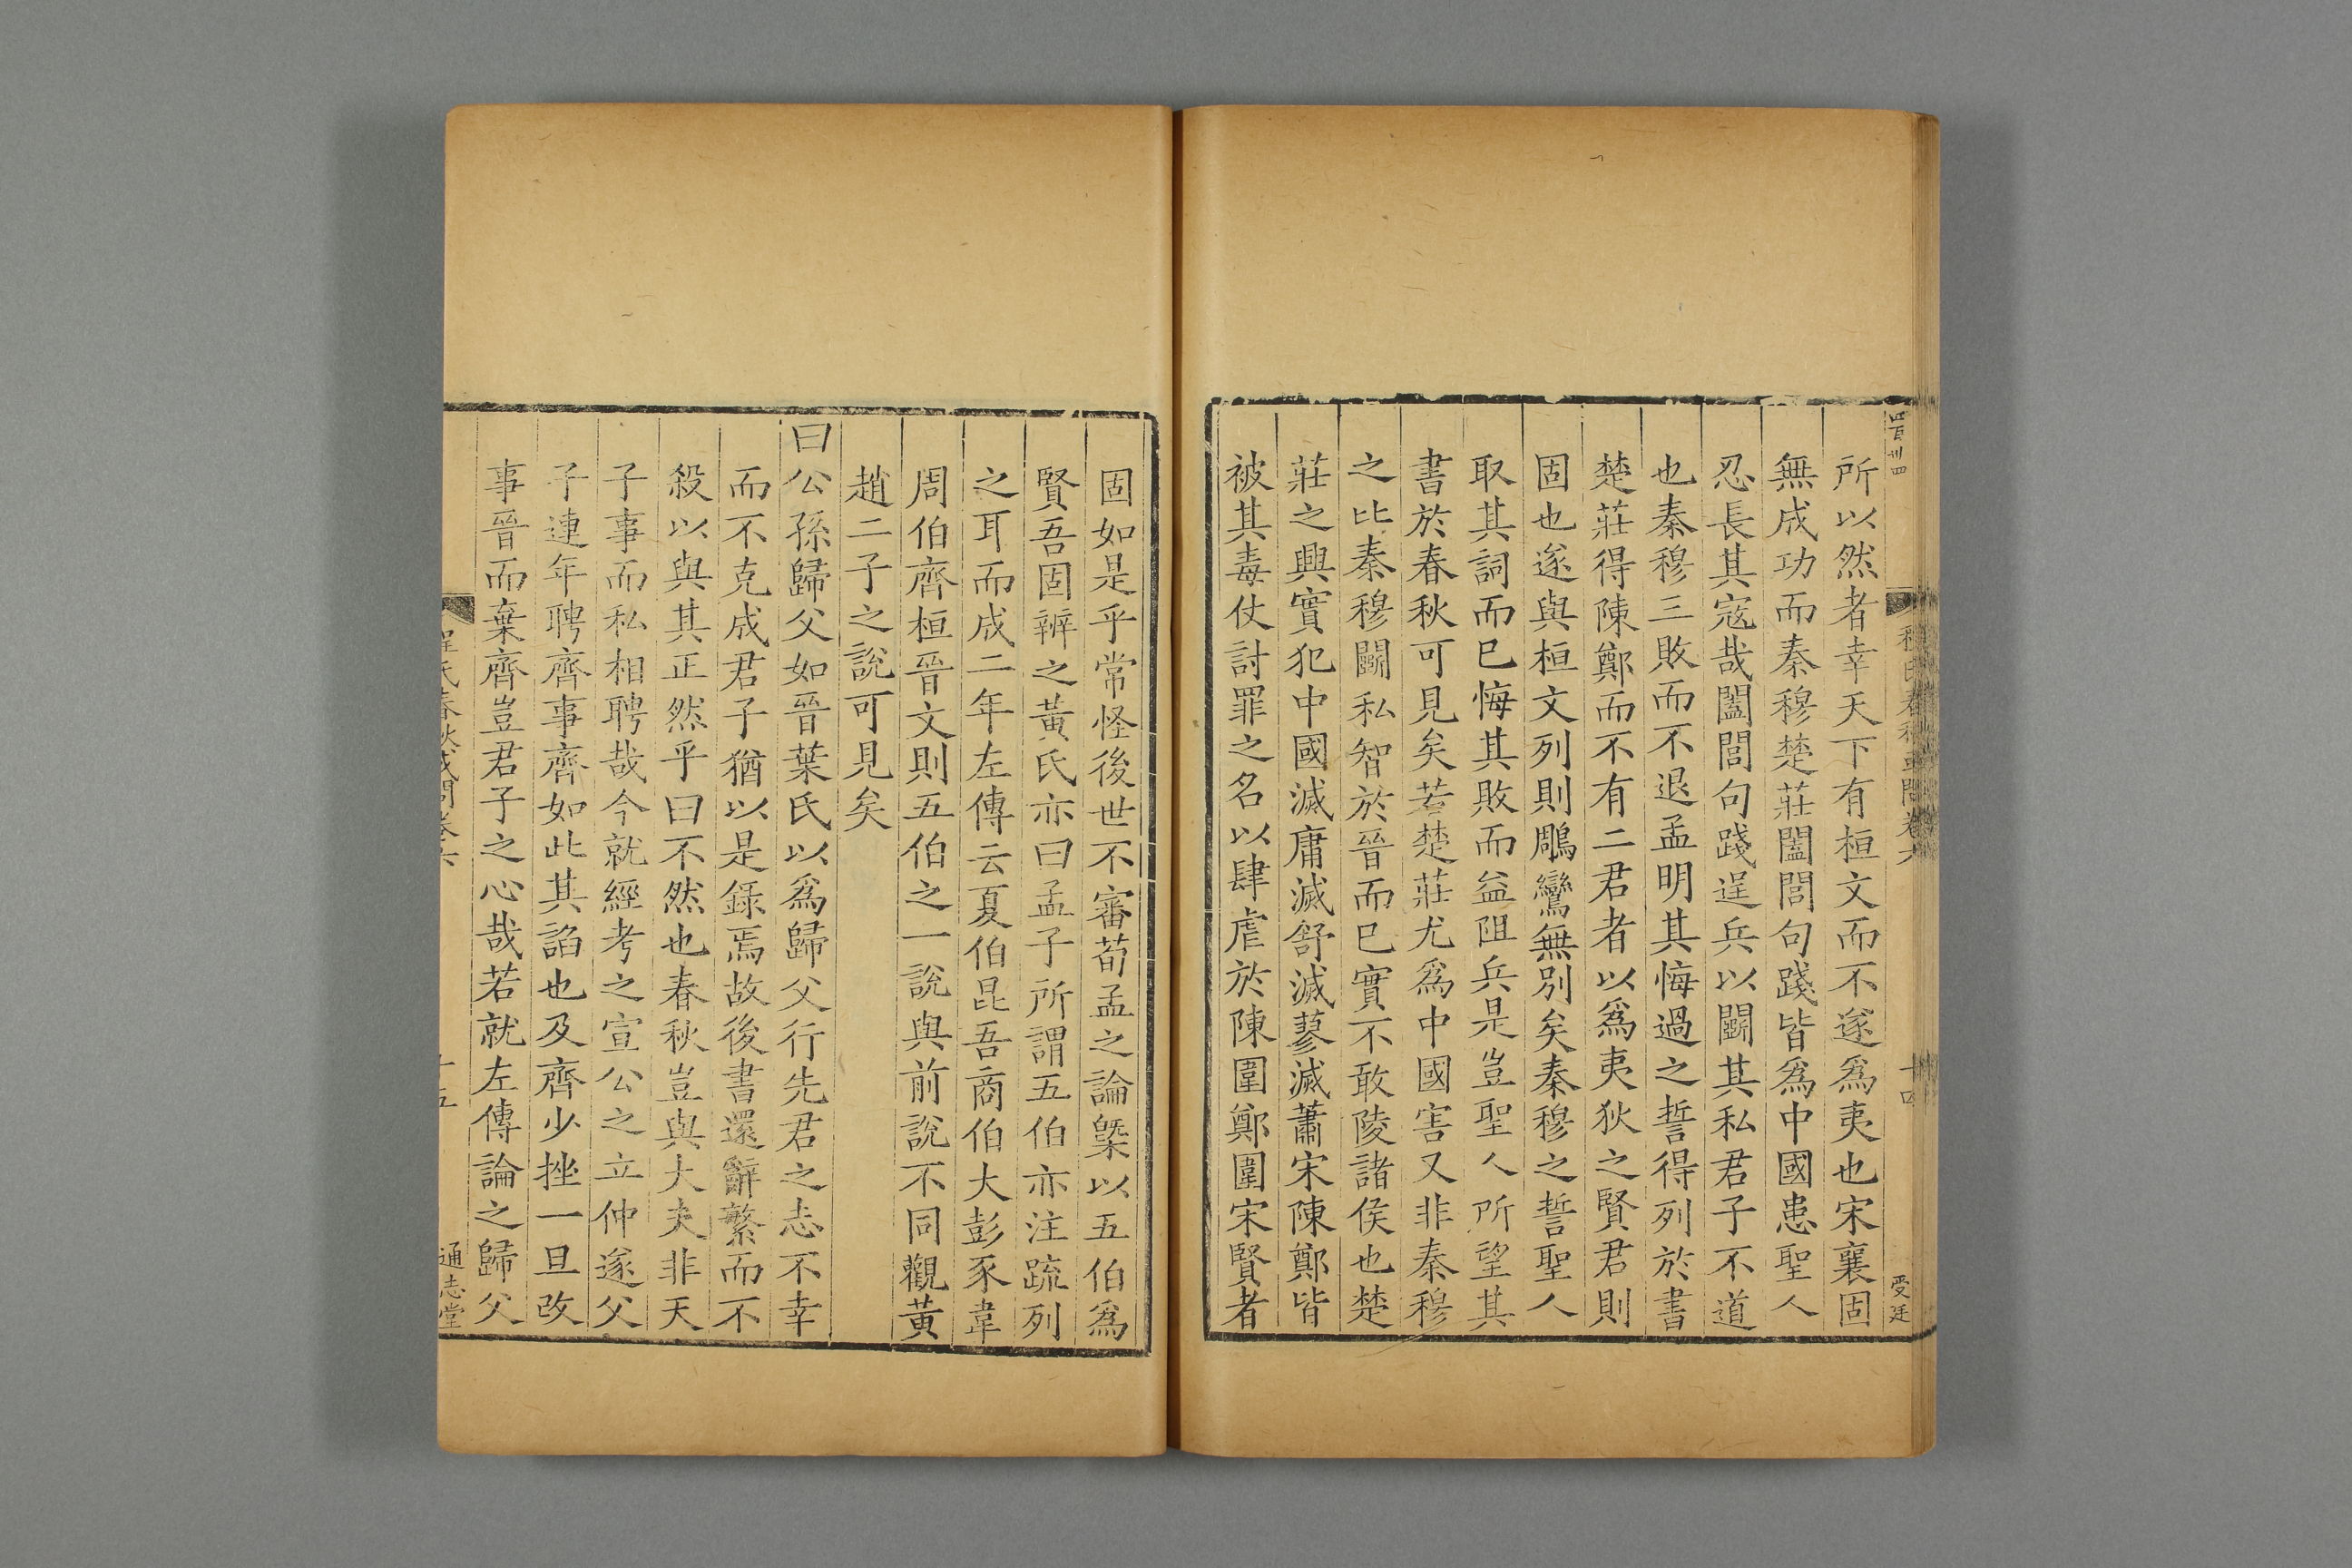 所以然者幸天下有桓文而不遂爲夷也宋襄固
無成功而秦穆楚莊闔閭句踐皆爲中國患聖人
忍長其寇哉闔閭句踐逞兵以鬬其私君子不道
也秦穆三敗而不退孟明其悔過之誓得列於書
楚莊得陳鄭而不有二君者以爲夷狄之賢君則
固也遂與桓文列則鵰鸞無別矣秦穆之誓聖人
取其詞而已悔其敗而益阻兵是豈聖人所望其
書於春秋可見矣若楚莊尤爲中國害又非秦穆
之比秦穆鬬私智於晉而已實不敢陵諸侯也楚
莊之興實犯中國滅庸滅舒滅蓼滅蕭宋陳鄭皆
被其毒仗討罪之名以肆虐於陳圍鄭圍宋賢者
程氏春秋或問卷六
十四
受廷
固如是乎常怪後世不審荀孟之論槩以五伯爲
賢吾固辨之黃氏亦曰孟子所謂五伯亦注疏列
之耳而成二年左傳云夏伯昆吾商伯大彭豕韋
周伯齊桓晉文則五伯之一說與前說不同觀黃
趙二子之說可見矣
曰公孫歸父如晉葉氏以爲歸父行先君之志不幸
而不克成君子猶以是錄焉故後書還辭繁而不
殺以與其正然乎曰不然也春秋豈與大夫非天
子事而私相聘哉今就經考之宣公之立仲遂父
子連年聘齊事齊如此其諂也及齊少挫一旦改
事晉而棄齊豈君子之心哉若就左傳論之歸父
程氏春秋或問卷六
十五
通志堂